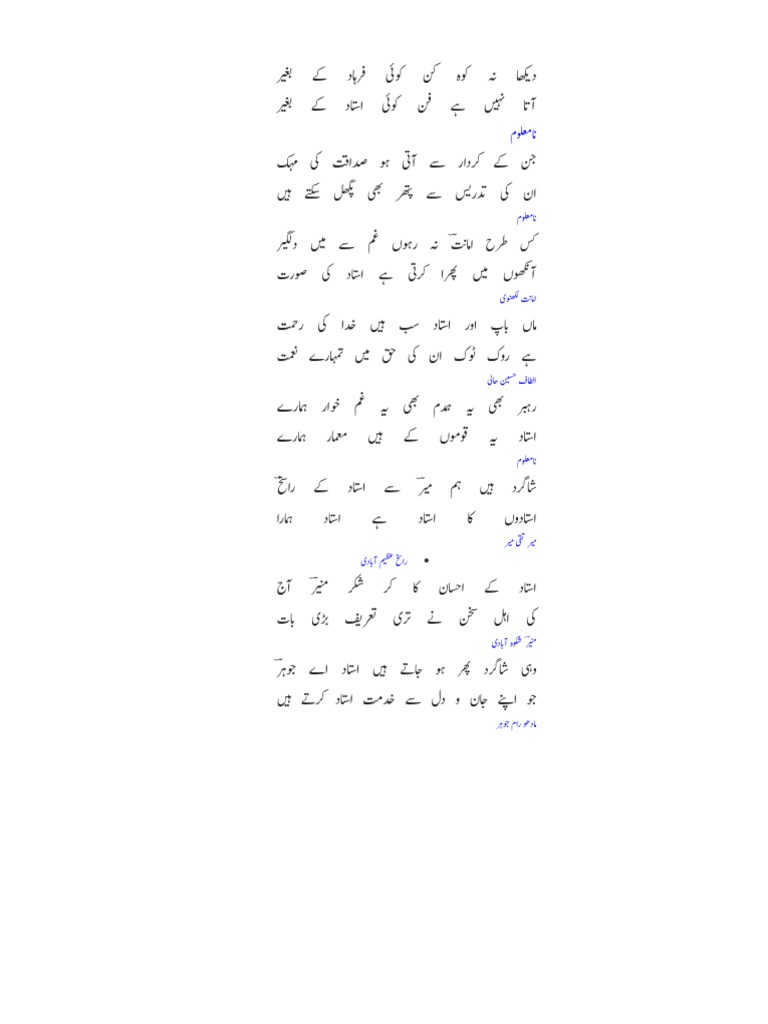 دیکھا نہ کوہ کن کوئی فرہاد کے بغیر
آتا نہیں ہے فن کوئی استاد کے بغیر
نامعلوم
جن کے کردار سے آتی ہو صداقت کی مہک
ان کی تدریس سے پتھر بھی پگھل سکتے ہیں
نامعلوم
کس طرح امانتؔ نہ رہوں غم سے میں دلگیر
آنکھوں میں پھرا کرتی ہے استاد کی صورت
امانت لکھنوی
ماں باپ اور استاد سب ہیں خدا کی رحمت
ہے روک ٹوک ان کی حق میں تمہارے نعمت
الطاف حسین حالی
رہبر بھی یہ ہمدم بھی یہ غم خوار ہمارے
استاد یہ قوموں کے ہیں معمار ہمارے
نامعلوم
شاگرد ہیں ہم میرؔ سے استاد کے راسخؔ
استادوں کا استاد ہے استاد ہمارا
میر تقی میر
• راسخ عظیم آبادی
استاد کے احسان کا کر شکر منیرؔ آج
کی اہل سخن نے تری تعریف بڑی بات
منیرؔ شکوہ آبادی
وہی شاگرد پھر ہو جاتے ہیں استاد اے جوہرؔ
جو اپنے جان و دل سے خدمت استاد کرتے ہیں
مادھو رام جوہر